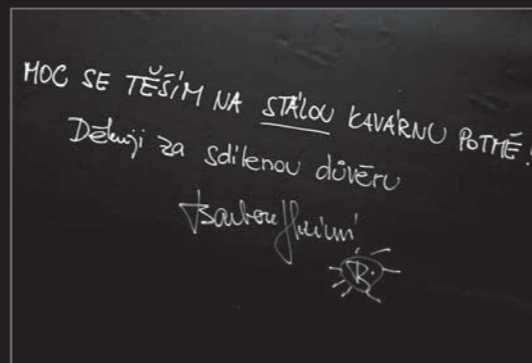 MOC SE TĚŠÍM NA STÁLOU KAVÁRNU POTMĚ!
Děkuji za sdílenou důvěru